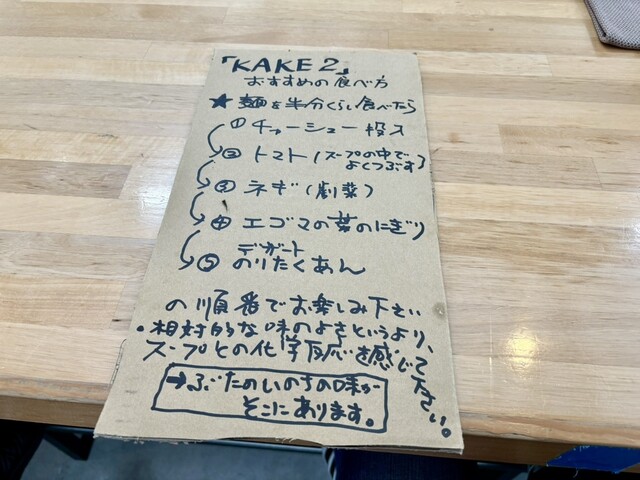 「KAKE2」
おすすめの食べ方
★ 麺を半分くらい食べたら
① チャーシュー投入
② トマト(スープの中で
よくつぶす)
③ ネギ(劇薬)
④ エゴマの葉のにぎり
デザート
⑤ のりたくあん
の順番でお楽しみ下さい
・相対的な味のよさというより、
スープとの化学反応を感じて下さい。
→ぶたのいのちの味が
そこにあります。